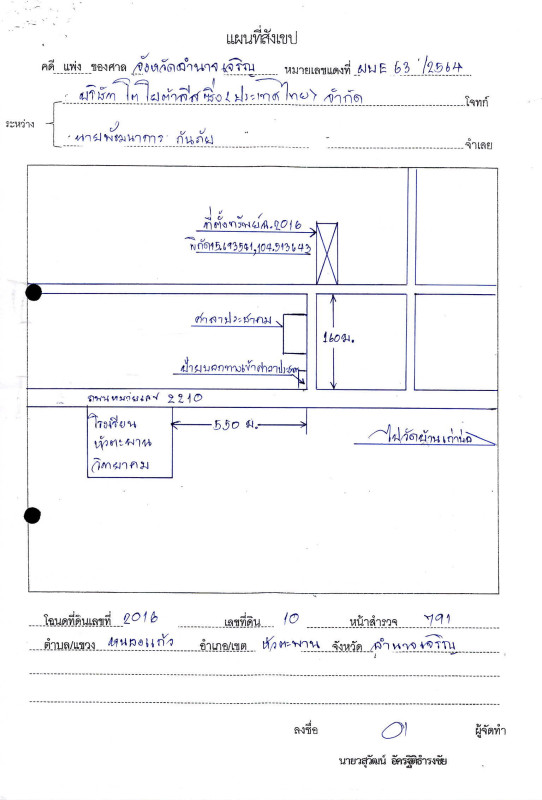 แผนที่สังเขป
คดี แพ่ง ของศาล จังหวัดอำนาจเจริญ หมายเลขแดงที่ ผบE 63 /2564
บริษัท โตโยต้าลีสซิ่ง (ประเทศไทย) จำกัด โจทก์
ระหว่าง
นายพัฒนาการ กันภัย จำเลย
ที่ตั้งทรัพย์ฉ.2016
พิกัด15.693541,104.513643
ศาลาประชาคม
160ม.
ป้ายบอกทางเข้าศาลาประชาคม
ถนนหมายเลข 2210
โรงเรียน
หัวตะพาน
วิทยาคม
550 ม.
ไปวัดบ้านเก่าบ่อ
โฉนดที่ดินเลขที่ 2016 เลขที่ดิน 10 หน้าสำรวจ 791
ตำบล/แขวง หนองแก้ว อำเภอ/เขต หัวตะพาน จังหวัด อำนาจเจริญ
ลงชื่อ ผู้จัดทำ
นายวสุวัฒน์ อัครฐิติธำรงชัย